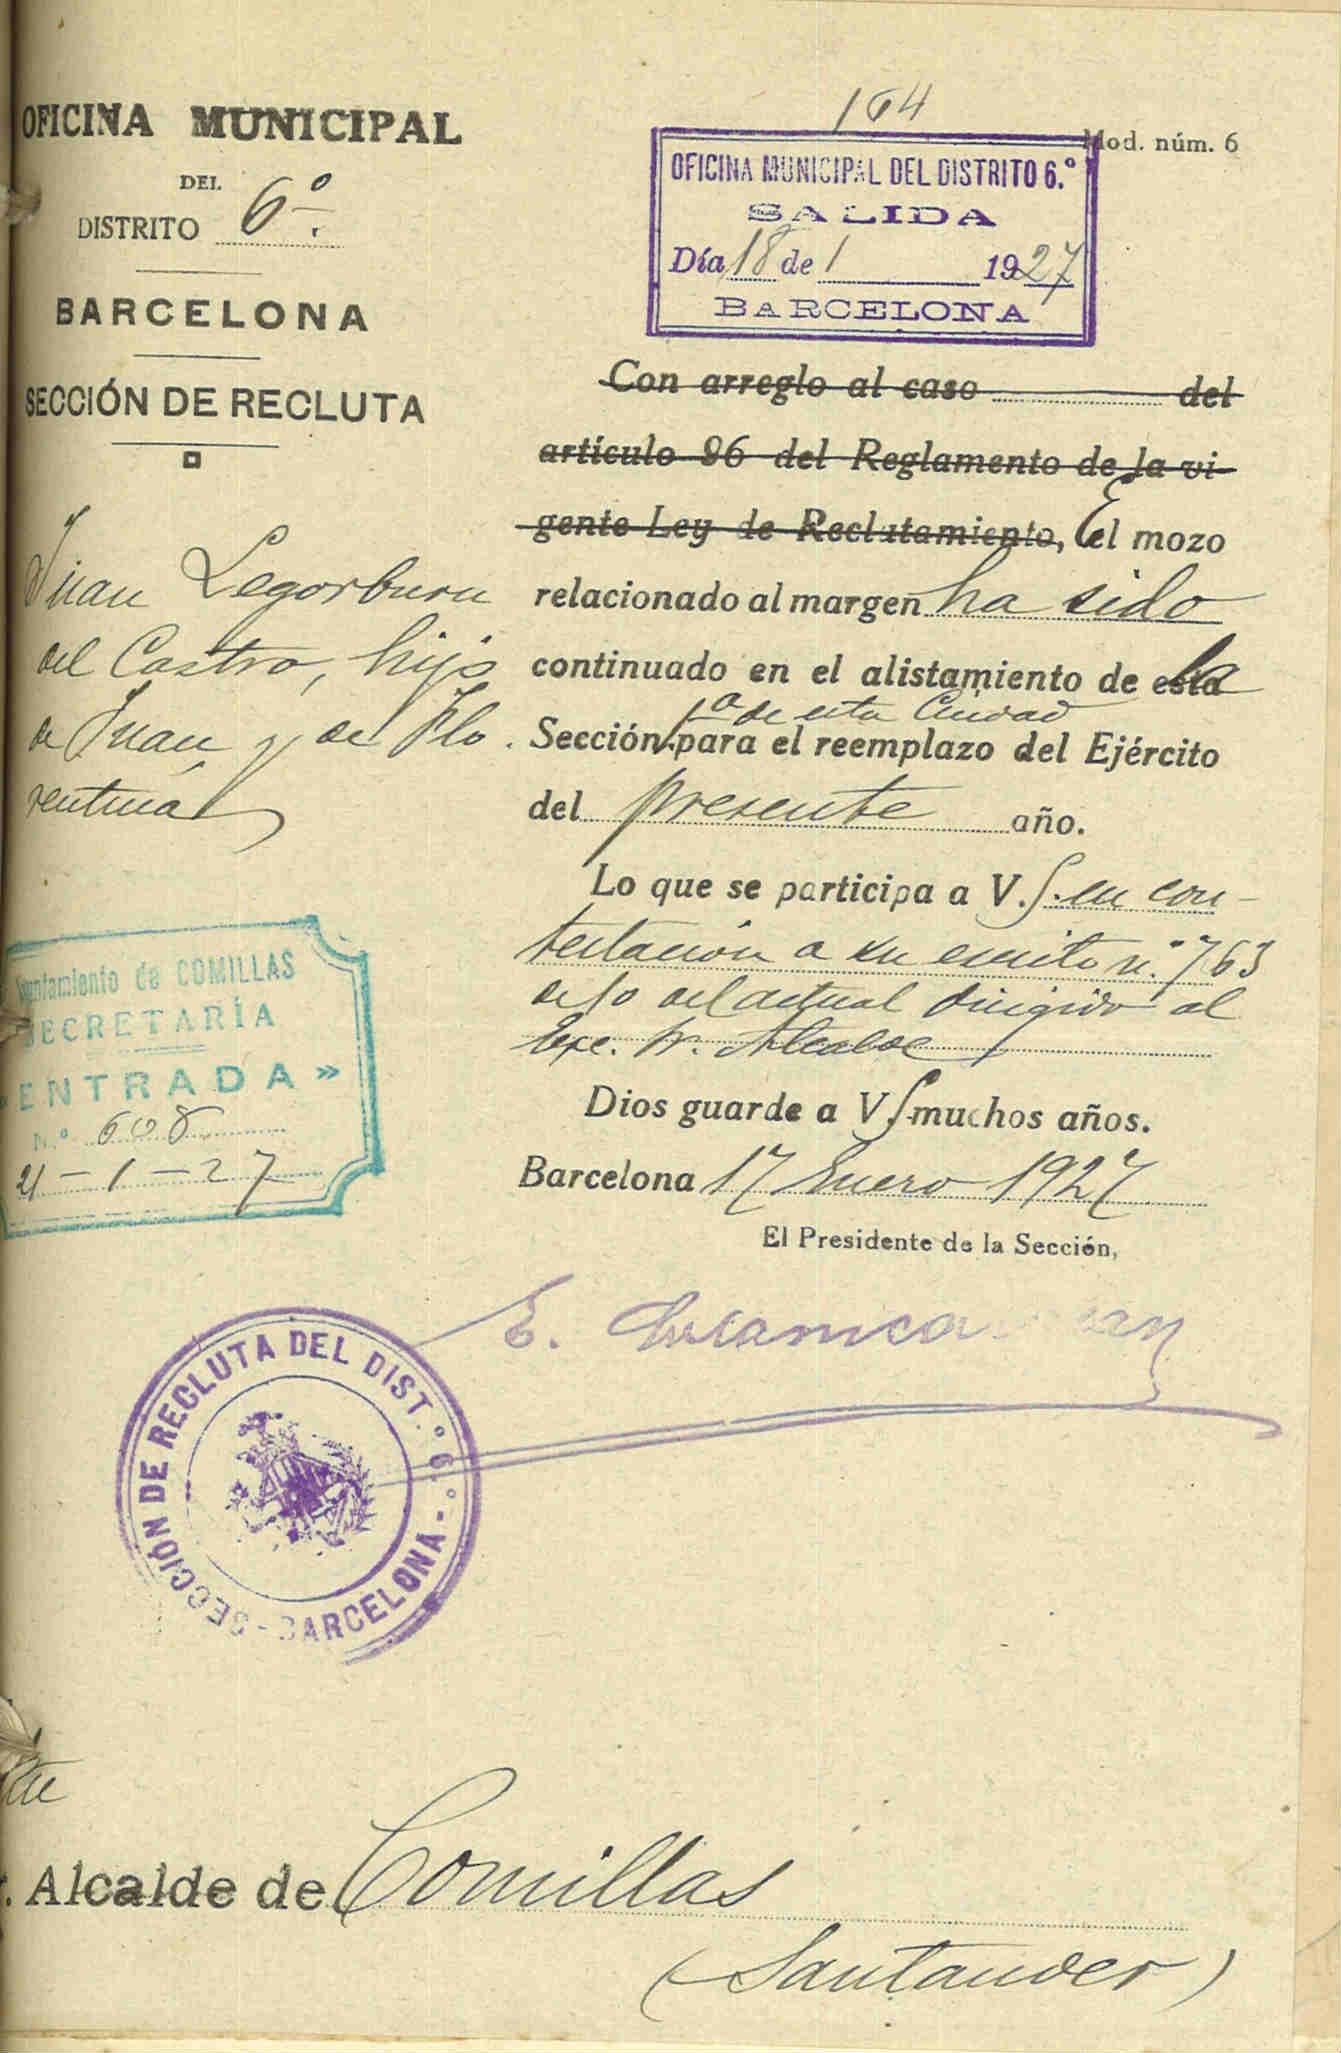 OFICINA MUNICIPAL
DEL
DISTRITO 6º
BARCELONA
SECCIÓN DE RECLUTA
Juan Legorburu
del Castro, hijo
de Juan y de Flo
rentina
164
Mod. núm. 6
OFICINA MUNICIPAL DEL DISTRITO 6.º
SALIDA
Día 18 de 1 1927
BARCELONA
Con arreglo al caso del
artículo 96 del Reglamento de la vi-
gente Ley de Reclutamiento, El mozo
relacionado al margen ha sido
continuado en el alistamiento de la
1ª de esta Ciudad
Sección para el reemplazo del Ejército
del presente año.
Lo que se participa a V. S. en con-
testación a su escrito n.º 763
de 10 del actual dirigido al
Exc. Sr. Alcalde
Dios guarde a V S muchos años.
Barcelona 17 Enero 1927
El Presidente de la Sección,
E.
Ayuntamiento de COMILLAS
SECRETARÍA
«ENTRADA»
N.º 608
21-1-27
SECCIÓN DE RECLUTA DEL DIST.º 6.º - BARCELONA -
r. Alcalde de Comillas
(Santander)